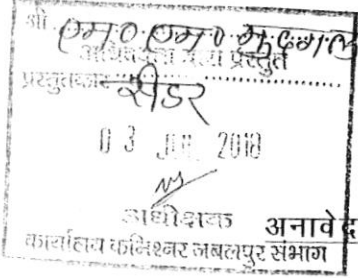 श्री एम० एम० मुदगल
अधिवक्ता द्वारा प्रस्तुत
प्रस्तुतकार रीडर
0 3 JUL 2018
अधीक्षक
अनावेद
कार्यालय कमिश्नर जबलपुर संभाग